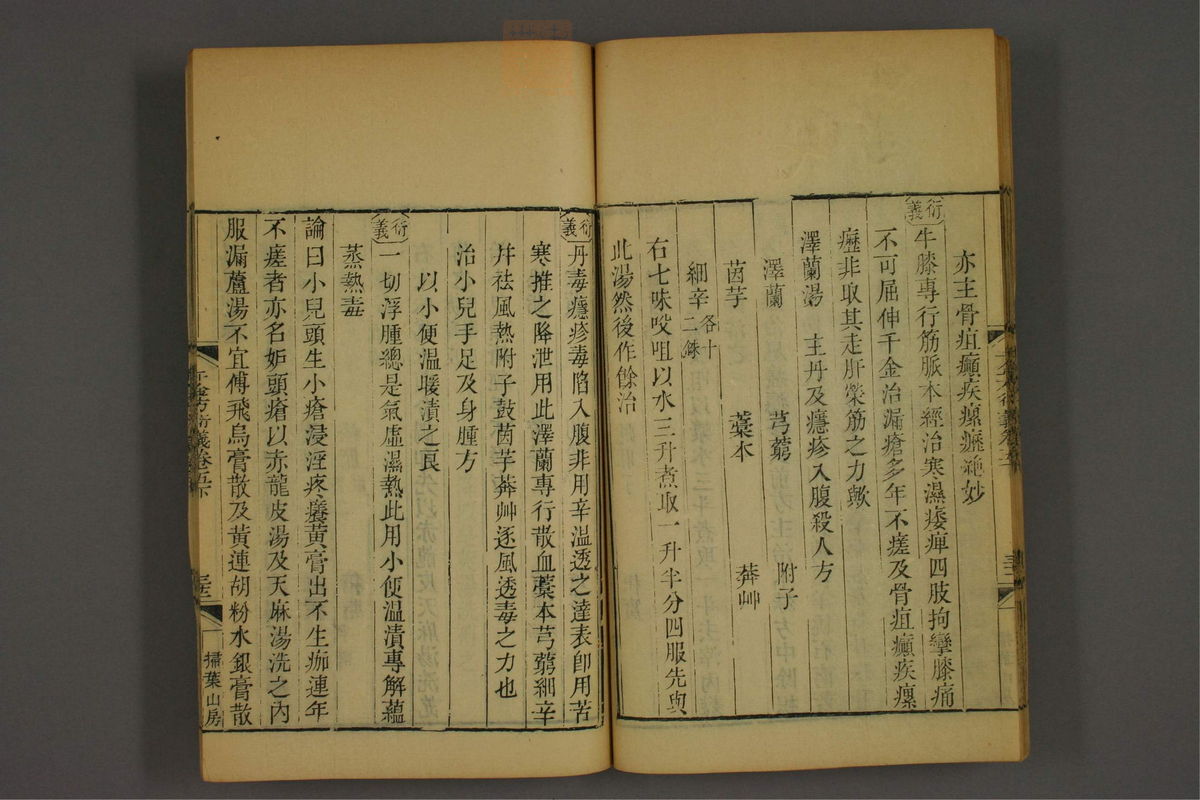 亦主骨疽癲疾瘰癧絶妙
衍義
牛膝專行筋脈本經治寒濕痿痺四肢拘攣膝痛
不可屈伸千金治漏瘡多年不瘥及骨疽癲疾瘰
癧非取其走肝榮筋之力歟
澤蘭湯 主丹及癮疹入腹殺人方
澤蘭 芎藭 附子
茵芋 藁本 莽艸
細辛各十二銖
右七味㕮咀以水三升煮取一升半分四服先與
此湯然後作餘治
衍義
丹毒癮疹毒陷入腹非用辛溫透之達表卽用苦
寒推之降泄用此澤蘭專行散血藁本芎藭細辛
幷祛風熱附子鼓茵芋莽艸逐風透毒之力也
治小兒手足及身腫方
以小便溫暖漬之良
衍義
一切浮腫總是氣虛濕熱此用小便溫漬專解蘊
蒸熱毒
論曰小兒頭生小瘡浸淫疼癢黃膏出不生痂連年
不瘥者亦名妬頭瘡以赤龍皮湯及天麻湯洗之內
服漏蘆湯不宜傅飛烏膏散及黃連胡粉水銀膏散
千金方衍義卷五下
掃葉山房